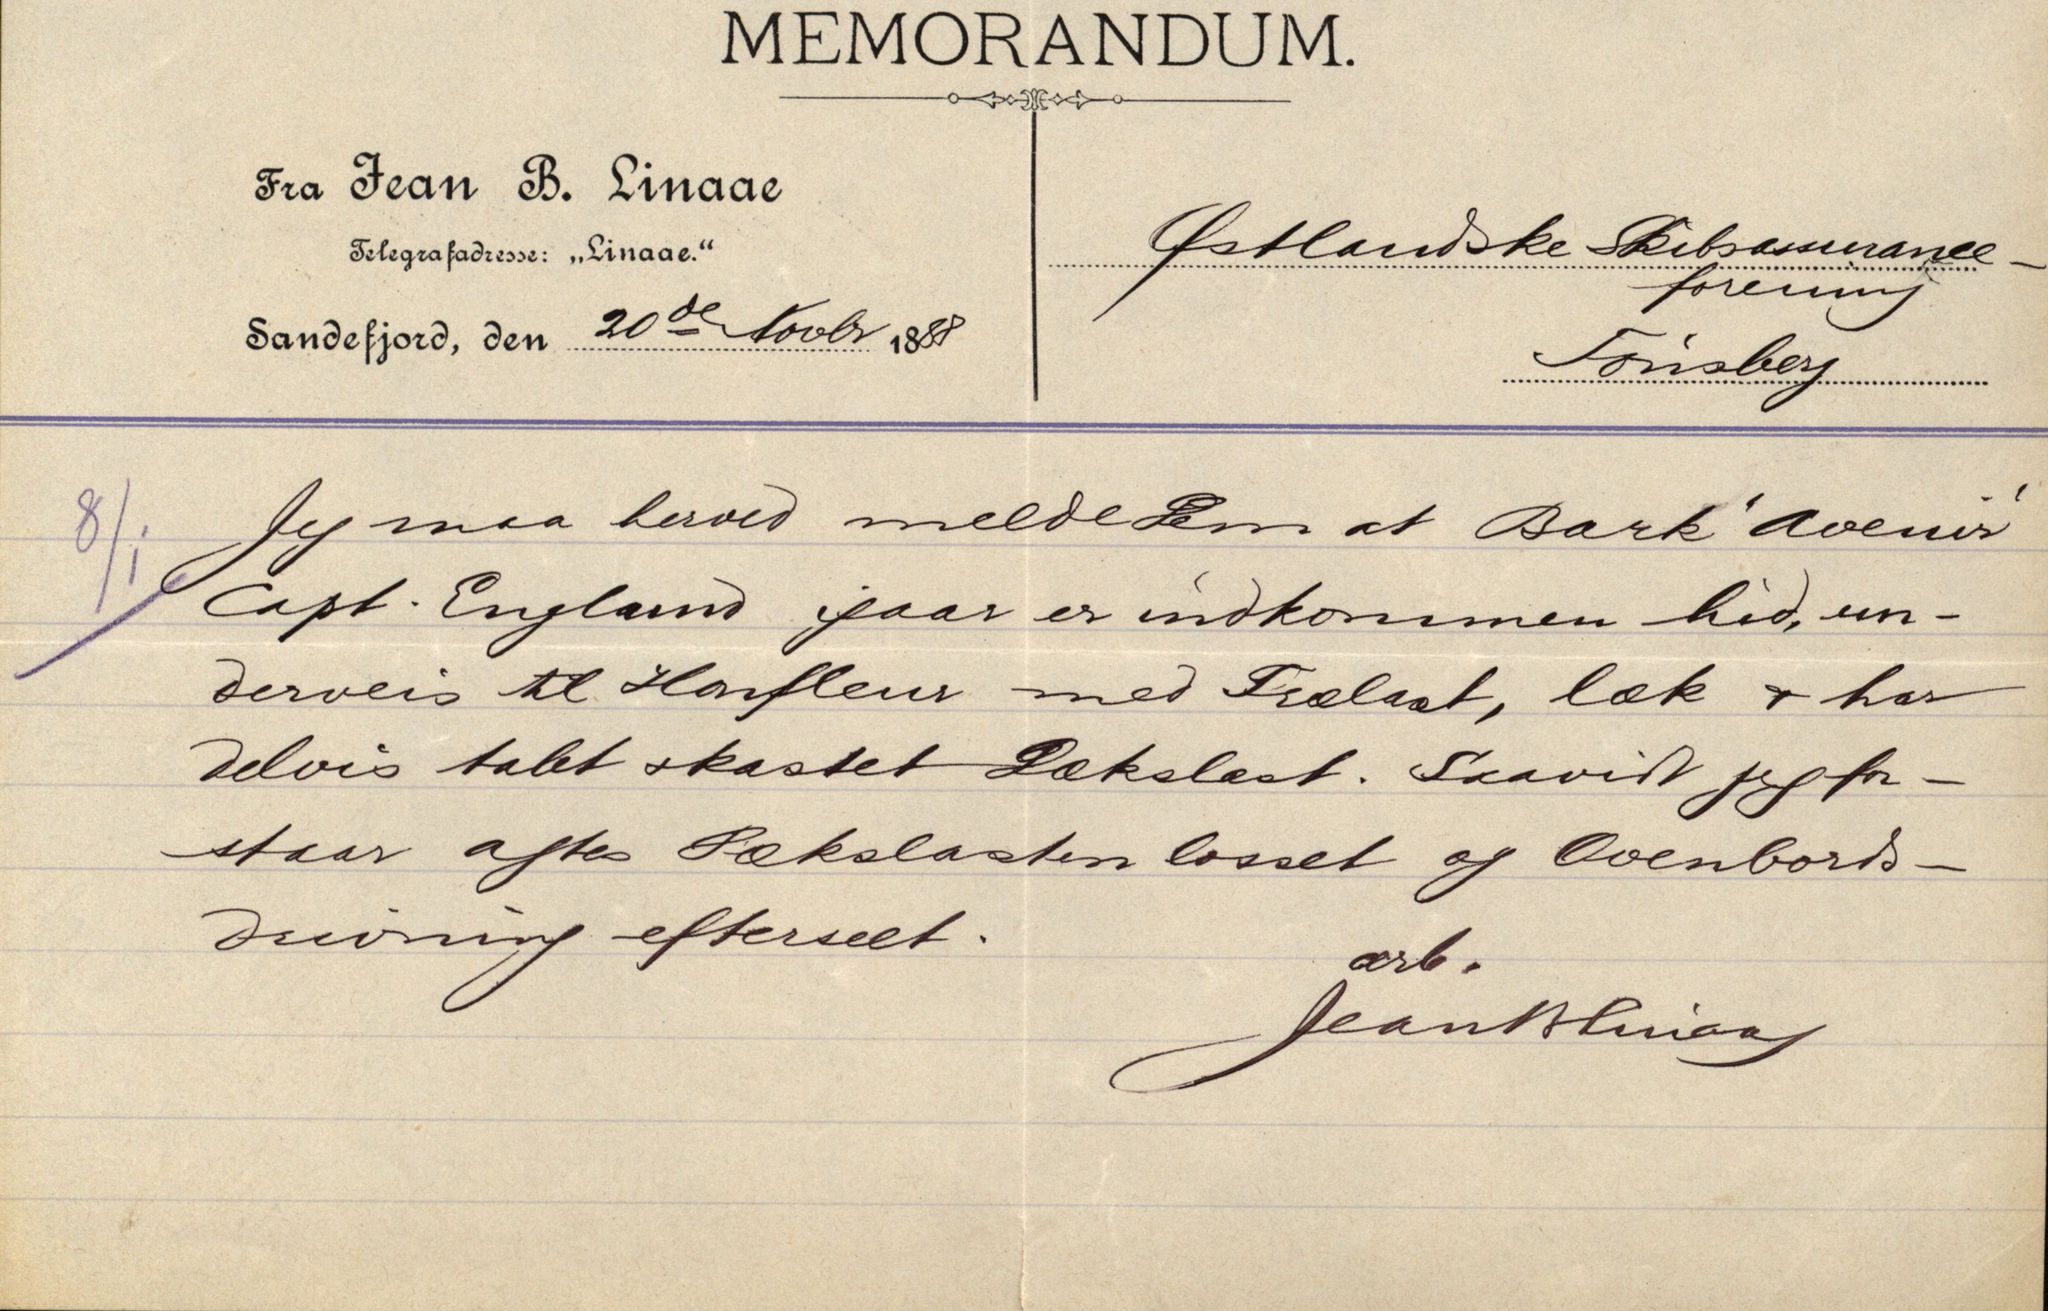 MEMORANDUM.
Fra Jean B. Linaae
Telegrafadresse: „Linaae.“
Sandefjord, den 20de Novbr 1888
Østlandske Skibsassurance-
forening
Tönsberg
8/1
Jeg maa herved melde Dem at Bark "Avenir"
Capt. England igaar er indkommen hid, un-
derveis til Honfleur med Trælast, læk & har
delvis tabt & kastet Dækslast. Saavidt jeg for-
staar agtes Dækslasten losset og Ovenbords-
drivning efterseet.
ærb.
Jean B Linaae